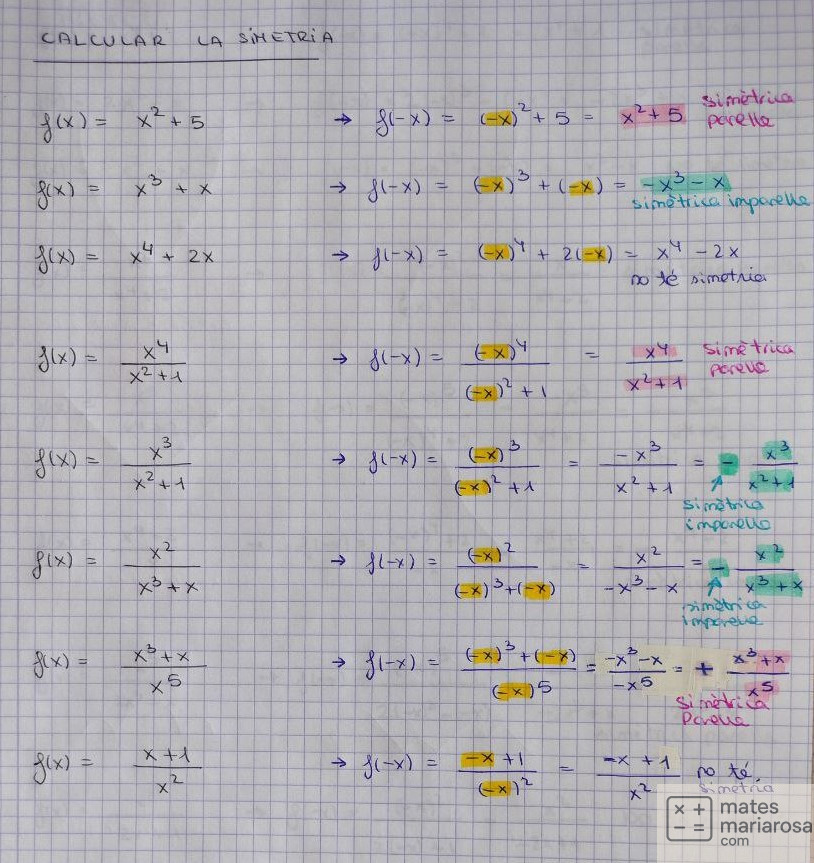 CALCULAR LA SIMETRIA
f(x) = x² + 5 → f(-x) = (-x)² + 5 = x² + 5 simètrica parella
f(x) = x³ + x → f(-x) = (-x)³ + (-x) = -x³ - x
simètrica imparella
f(x) = x⁴ + 2x → f(-x) = (-x)⁴ + 2(-x) = x⁴ - 2x
no té simetria
f(x) = x⁴/(x²+1) → f(-x) = (-x)⁴/((-x)²+1) = x⁴/(x²+1) simètrica parella
f(x) = x³/(x²+1) → f(-x) = (-x)³/((-x)²+1) = -x³/(x²+1) = - x³/(x²+1)
simètrica
imparella
f(x) = x²/(x³+x) → f(-x) = (-x)²/((-x)³+(-x)) = x²/(-x³-x) = - x²/(x³+x)
simètrica
imparella
f(x) = (x³+x)/x⁵ → f(-x) = ((-x)³+(-x))/(-x)⁵ = (-x³-x)/(-x⁵) = + (x³+x)/x⁵
simètrica
Parella
f(x) = (x+1)/x² → f(-x) = (-x+1)/(-x)² = (-x+1)/x² no té
simetria
× + mates
- = mariarosa
com